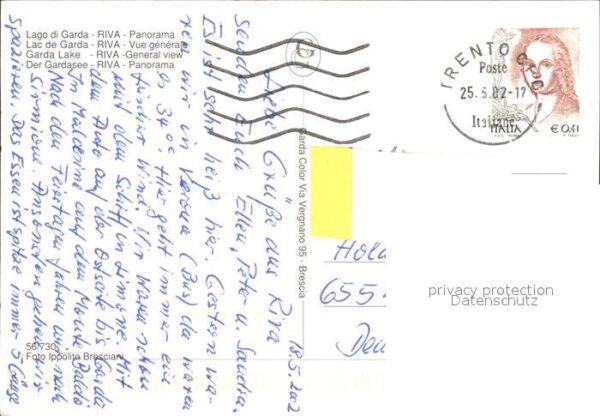 Lago di Garda - RIVA - Panorama
Lac de Garda - RIVA - Vue générale
Garda Lake - RIVA - General view
Der Gardasee - RIVA - Panorama
18.5.2002
Liebe Grüße aus Riva
senden Euch Ellen, Peter u. Sandra.
Es ist sehr heiß hier. Gestern wa-
ren wir in Verona (Bus) da waren
es 34°C. Hier geht immer ein
frischer Wind. Wir waren schon
mit dem Schiff in Limone. Mit
dem Auto auf der Ostseite bis Garda
In Malcesine auf dem Monte Baldo
Nach den Feiertagen fahren wir nach
Sirmione. Ansonsten gehen wir
spazieren. Das Essen ist spitze immer 5 Gänge
56/730
Foto Ippolito Bresciani
Garda Color Via Vergnano 95 - Brescia
TRENTO CPO
25.5.02-17
Poste
Italiane
ITALIA
€ 0,41
655
privacy protection
Datenschutz